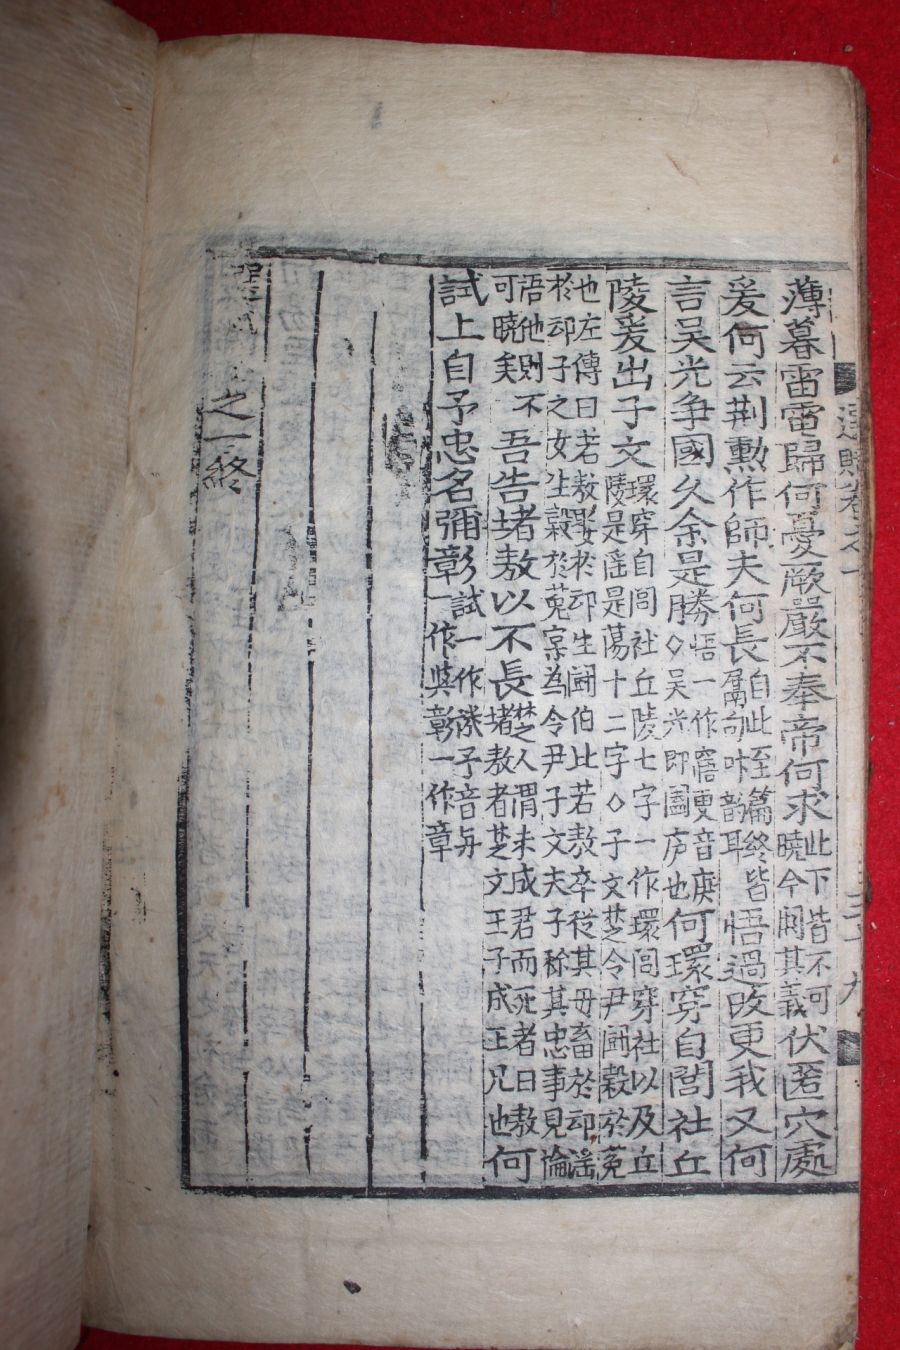 選賦卷之一 三十九
薄暮雷電歸何憂厥嚴不奉帝何求此下皆不可曉今闕其義伏匿穴處
爰何云荆勲作師夫何長自此至篇終皆屬句叶韵耳悟過改更我又何
言吴光争國久余是勝悟一作寤更音庚◇吴光即闔庐也何環穿自閭社丘
陵爰出子文環穿自閭社丘陵七字一作環閭穿社以及丘陵是滛是蕩十二字◇子文楚令尹鬬榖於菟
也左傳曰若敖娶於邧生鬬伯比若敖卒従其母畜於邧滛於邧子之女生榖於菟寔為令尹子文夫子称其忠事見論
語他則不可曉矣吾告堵敖以不長楚人謂未成君而死者曰敖堵敖者楚文王子成王兄也何
試上自予忠名彌彰試一作予音与一作彰一作章
之一終